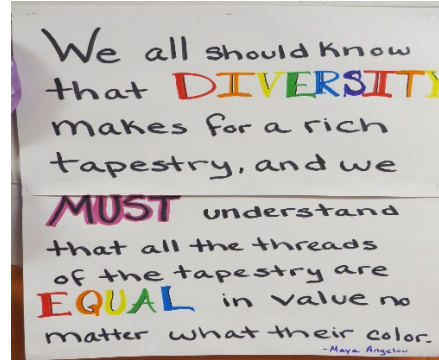 We all should know
that DIVERSITY
makes for a rich
tapestry, and we
MUST understand
that all the threads
of the tapestry are
EQUAL in value no
matter what their color.
-Maya Angelou